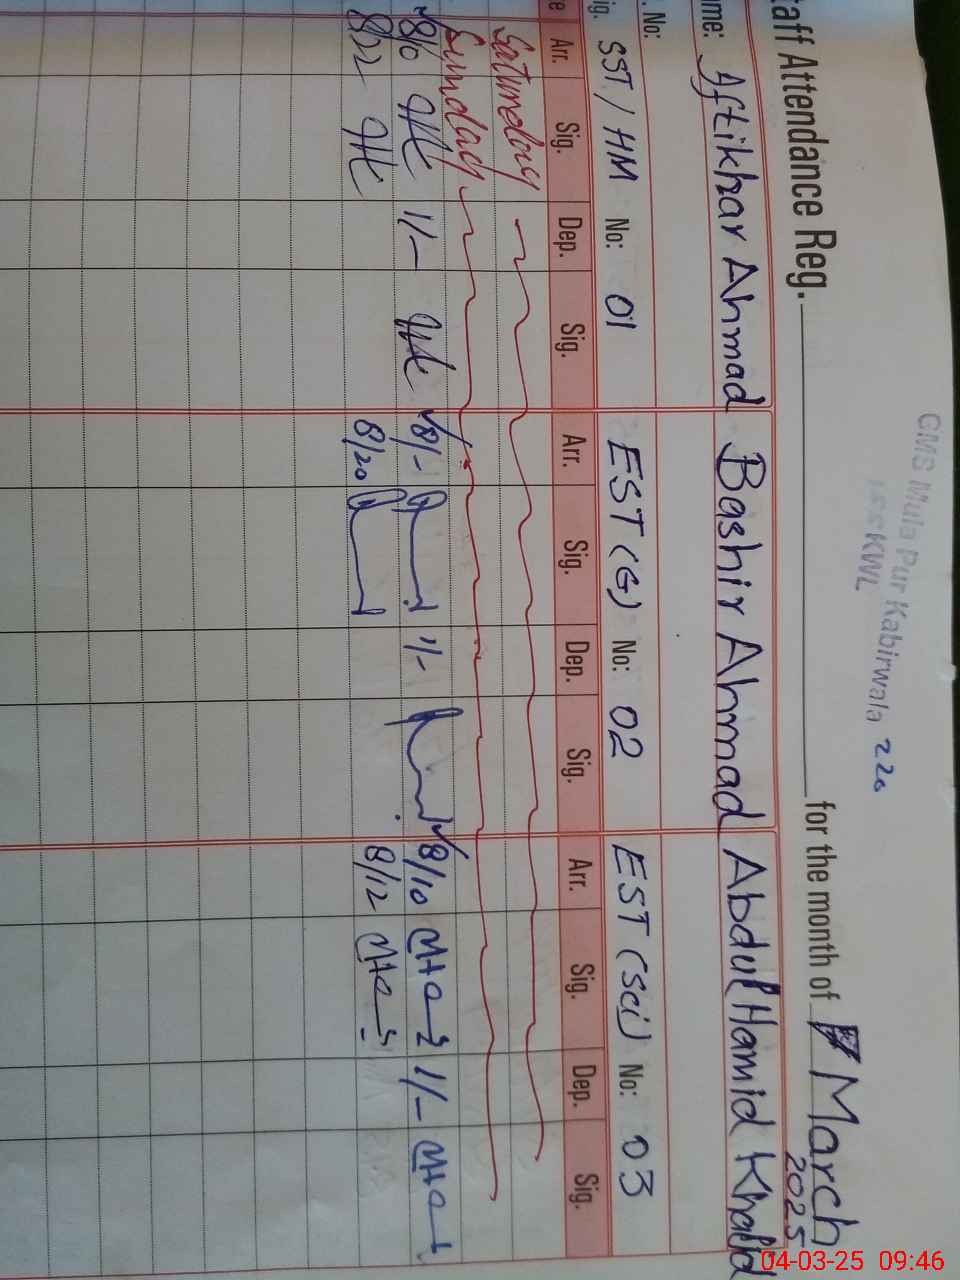 GMS Mula Pur Kabirwala 220
KWL
taff Attendance Reg. for the month of March
2025
me: Iftikhar Ahmad Bashir Ahmad Abdul Hamid Khalid
. No:
ig. SST/HM No: 01 EST (G) No: 02 EST (Sci) No: 03
e Arr. Sig. Dep. Sig. Arr. Sig. Dep. Sig. Arr. Sig. Dep. Sig.
Saturday
Sunday
8/0 1/- 8/- 1/- 8/10 1/-
8/22 8/20 8/12
04-03-25 09:46